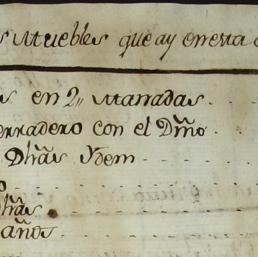 s Muebles que ay en esta
s en 2,, Manadas
erradero con el D̃ño
D̃has Ydem
o
D̃has
años